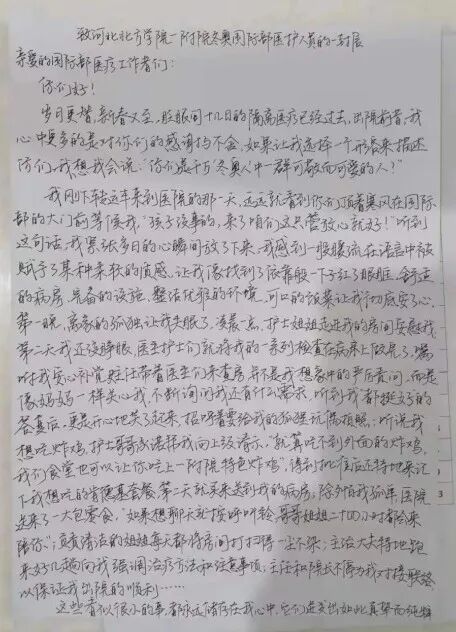 致河北北方学院一附院冬奥国际部医护人员的一封信
亲爱的国际部医疗工作者们：
你们好！
岁月更替，新春又至，眨眼间十几日的隔离医疗已经过去，出院前者，我
心中更多的是对你们的感谢与不舍，如果让我选择一个形容来描述
你们，我想我会说：“你们是千万‘冬奥人’中一群可敬而可爱的人？”
我刚下转运车来到医院的那一天，远远就看到你们顶着寒风在国际
部的大门前等候我，“孩子没事的，来了咱们这只管放心就好！”听到
这句话，我紧张多日的心瞬间放了下来，我感到一股暖流在语言中被
赋予了某种柔软的质感，让我像找到了依靠般一下子红了眼眶，舒适
的病房，完备的设施，整洁优雅的环境，可口的饭菜让我彻底安了心，
第一晚，离家的孤独让我失眠了，凌晨一点，护士姐姐走进我的房间安慰我，
第二天我还没睁眼，医生护士们就将我的一系列检查在病床上做完了，嘱
咐我安心补觉，赃任带着医生们来查房，并不是我想象中的严厉责问，而是
像妈妈一样关心我，不断询问我还有什么需求，听到我都挺好的
答复后，更是开心地笑了起来，招呼着要给我的狐狸玩偶拍照；听说我
想吃炸鸡，护士哥哥承诺帮我向上级请示，“就算吃不到外面的炸鸡，
我们食堂也可以让你吃上一附院特色炸鸡”，请到批准后还特地来记
下我想吃的肯德基套餐，第二天就买来送到我的病房；除夕怕我孤单，医院
送来了一大包零食，“如果想聊天就按呼叫铃，哥哥姐姐二十四小时都会来
陪你”；负责清洁的姐姐每天都将房间打扫得一尘不染；主治大夫特地跑
来好几趟向我强调治疗方法和注意事项；主任和院长不停为我对接联络
以保证我出院的顺利……
这些看似很小的事，都永远储存在我心中，它们是我出如此真挚而纯粹